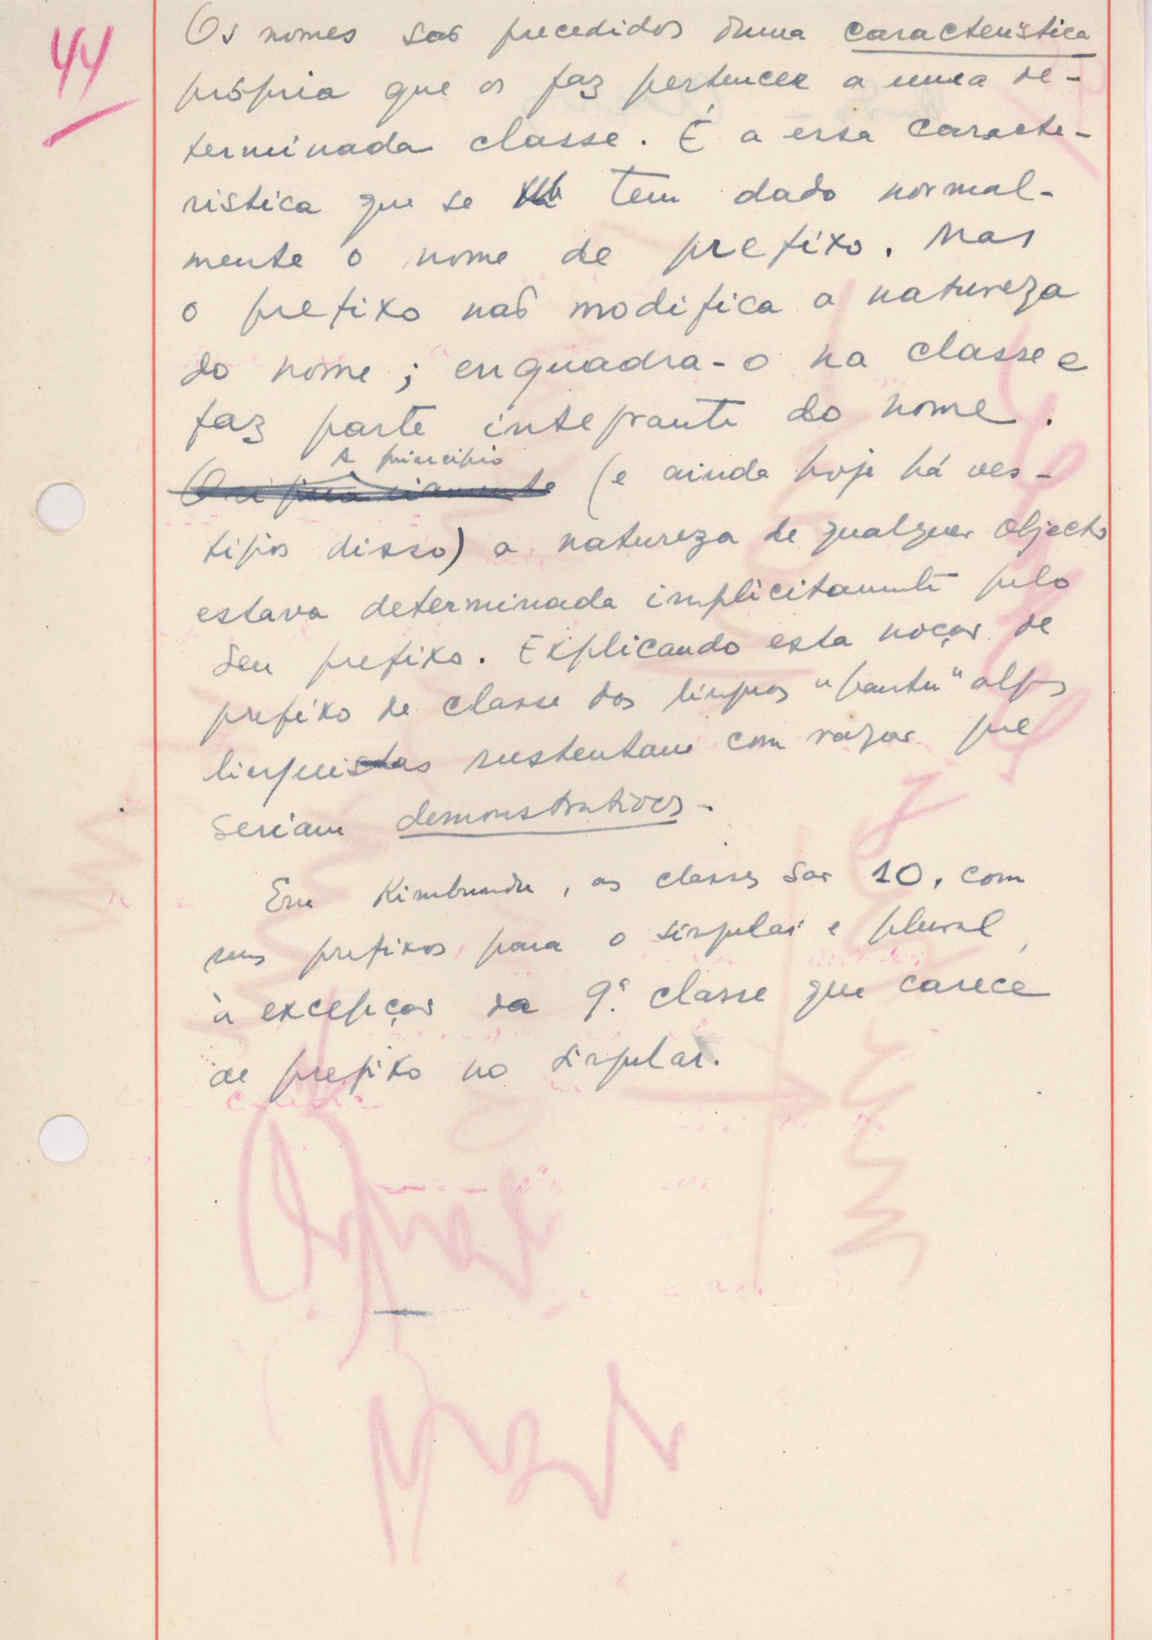 44
Os nomes são precedidos duma característica
própria que os faz pertencer a uma de-
terminada classe. É a essa caracte-
ristica que se tem dado normal-
mente o nome de prefixo. Mas
o prefixo não modifica a natureza
do nome; enquadra-o na classe e
faz parte integrante do nome.
A princípio
Originàriamente (e ainda hoje há ves-
tígios disso) a natureza de qualquer objecto
estava determinada implicitamente pelo
seu prefixo. Explicando esta noção de
prefixo de classe das línguas "bantu" alguns
linguistas sustentam com razão que
seriam demonstrativos.
Em Kimbundu, as classes são 10, com
seus prefixos para o singular e plural,
à excepção da 9ª classe que carece
de prefixo no singular.